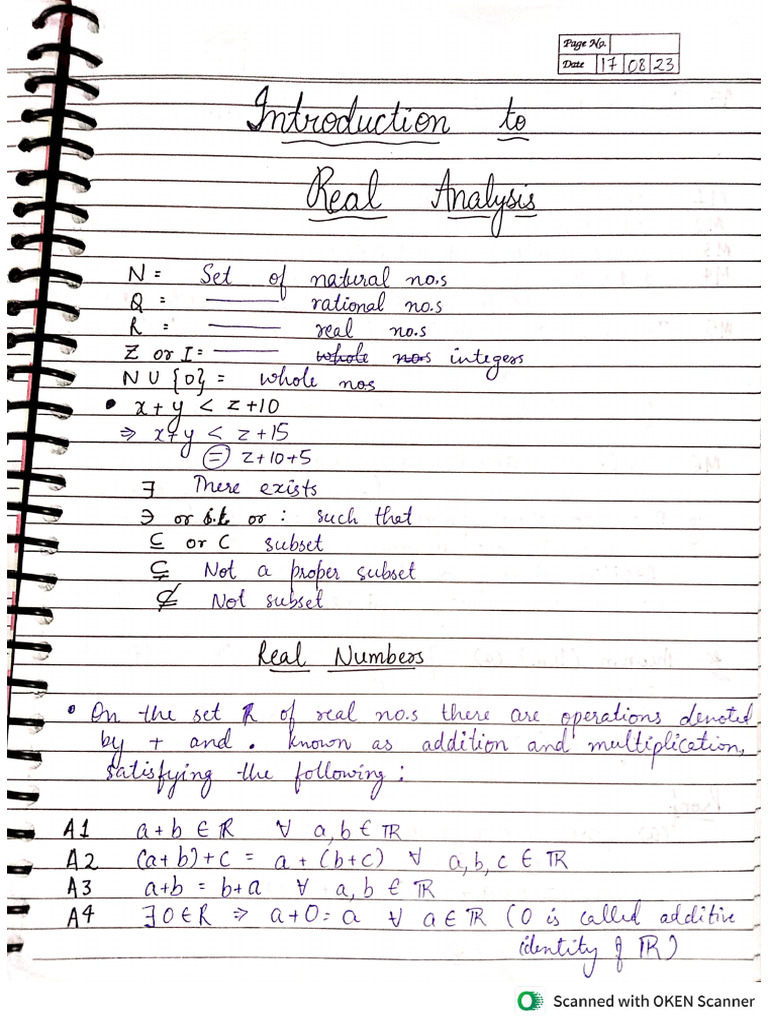 Page No.
Date 17 08 23
Introduction to
Real Analysis
N = Set of natural no.s
Q = ——— rational no.s
R = ——— real no.s
Z or I = ——— whole nos integers
N ∪ {0} = whole nos
• x+y < z+10
⇒ x+y < z+15
= z+10+5
∃ There exists
∋ or s.t or : such that
⊆ or ⊂ subset
⊊ Not a proper subset
⊄ Not subset
Real Numbers
• On the set R of real no.s there are operations denoted
by + and . known as addition and multiplication,
satisfying the following :
A1 a+b ∈ R ∀ a,b ∈ ℝ
A2 (a+b)+c = a+(b+c) ∀ a,b,c ∈ ℝ
A3 a+b = b+a ∀ a,b ∈ ℝ
A4 ∃ 0 ∈ R ⇒ a+0=a ∀ a ∈ ℝ (0 is called additive
identity of ℝ)
Scanned with OKEN Scanner